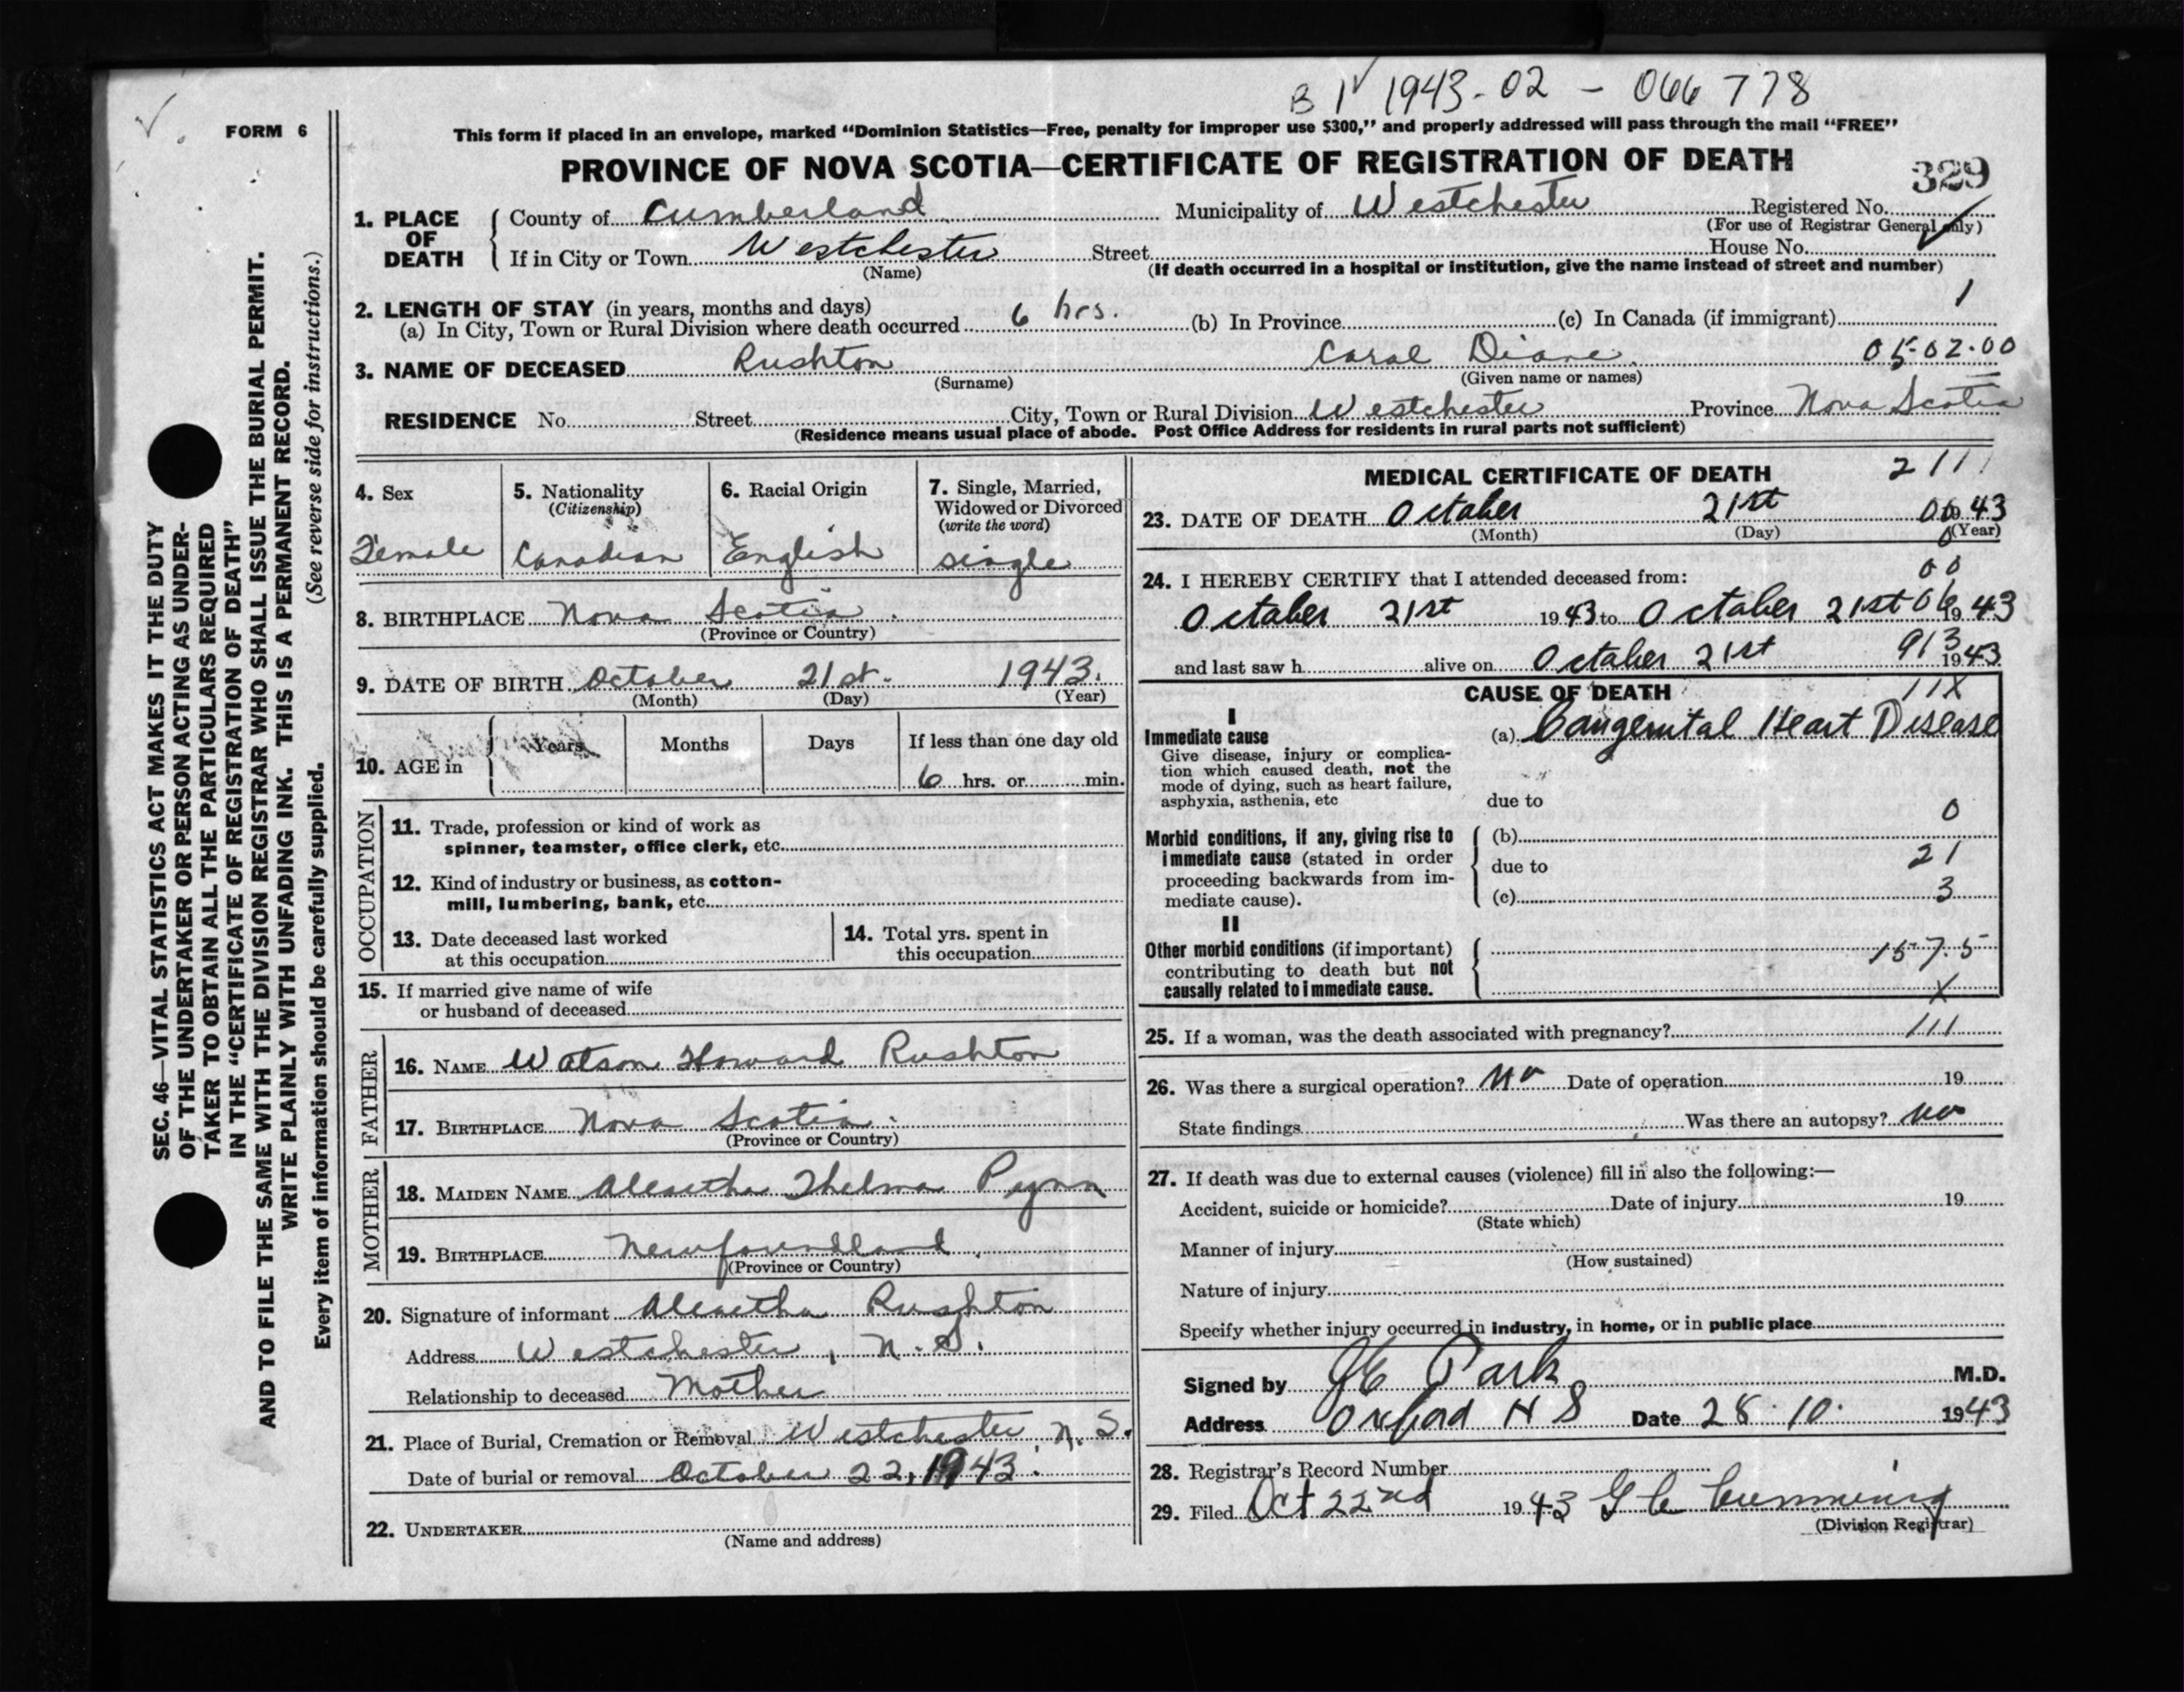 B 1 1943-02-066778
FORM 6
This form if placed in an envelope, marked “Dominion Statistics—Free, penalty for improper use $300,” and properly addressed will pass through the mail “FREE”
PROVINCE OF NOVA SCOTIA—CERTIFICATE OF REGISTRATION OF DEATH
329
SEC. 46—VITAL STATISTICS ACT MAKES IT THE DUTY
OF THE UNDERTAKER OR PERSON ACTING AS UNDER-
TAKER TO OBTAIN ALL THE PARTICULARS REQUIRED
IN THE “CERTIFICATE OF REGISTRATION OF DEATH”
AND TO FILE THE SAME WITH THE DIVISION REGISTRAR WHO SHALL ISSUE THE BURIAL PERMIT.
WRITE PLAINLY WITH UNFADING INK. THIS IS A PERMANENT RECORD.
Every item of information should be carefully supplied. (See reverse side for instructions.)
1. PLACE OF DEATH
County of Cumberland Municipality of Westchester Registered No.
(For use of Registrar General only)
If in City or Town Westchester Street House No.
(Name) (If death occurred in a hospital or institution, give the name instead of street and number)
2. LENGTH OF STAY (in years, months and days) 1
(a) In City, Town or Rural Division where death occurred 6 hrs. (b) In Province (c) In Canada (if immigrant)
3. NAME OF DECEASED Rushton Carol Diane 05-02-00
(Surname) (Given name or names)
RESIDENCE No. Street City, Town or Rural Division Westchester Province Nova Scotia
(Residence means usual place of abode. Post Office Address for residents in rural parts not sufficient)
4. Sex
Female
5. Nationality
(Citizenship)
Canadian
6. Racial Origin
English
7. Single, Married,
Widowed or Divorced
(write the word)
single
8. BIRTHPLACE Nova Scotia
(Province or Country)
9. DATE OF BIRTH October 21st. 1943.
(Month) (Day) (Year)
10. AGE in
Years Months Days If less than one day old
6 hrs. or min.
OCCUPATION
11. Trade, profession or kind of work as
spinner, teamster, office clerk, etc.
12. Kind of industry or business, as cotton-
mill, lumbering, bank, etc.
13. Date deceased last worked
at this occupation
14. Total yrs. spent in
this occupation
15. If married give name of wife
or husband of deceased
FATHER
16. NAME Watson Howard Rushton
17. BIRTHPLACE Nova Scotia
(Province or Country)
MOTHER
18. MAIDEN NAME Aleaitha Thelma Pynn
19. BIRTHPLACE Newfoundland
(Province or Country)
20. Signature of informant Aleaitha Rushton
Address Westchester, N.S.
Relationship to deceased Mother
21. Place of Burial, Cremation or Removal Westchester, N.S.
Date of burial or removal October 22, 1943.
22. UNDERTAKER
(Name and address)
MEDICAL CERTIFICATE OF DEATH 2111
23. DATE OF DEATH October 21st 1943
(Month) (Day) (Year)
24. I HEREBY CERTIFY that I attended deceased from: 00
October 21st 1943 to October 21st 06 1943
and last saw h alive on October 21st 913 1943
CAUSE OF DEATH 11X
I
Immediate cause
Give disease, injury or complica-
tion which caused death, not the
mode of dying, such as heart failure,
asphyxia, asthenia, etc
(a) Congenital Heart Disease
due to
Morbid conditions, if any, giving rise to
immediate cause (stated in order
proceeding backwards from im-
mediate cause).
0
(b)
due to 21
(c) 3
II
Other morbid conditions (if important)
contributing to death but not
causally related to immediate cause.
157.5
X
25. If a woman, was the death associated with pregnancy? 111
26. Was there a surgical operation? No Date of operation 19
State findings Was there an autopsy? No
27. If death was due to external causes (violence) fill in also the following:—
Accident, suicide or homicide? Date of injury 19
(State which)
Manner of injury
(How sustained)
Nature of injury
Specify whether injury occurred in industry, in home, or in public place
Signed by Park M.D.
Address Oxford N S Date 28.10. 1943
28. Registrar's Record Number
29. Filed Oct 22nd 1943 G C Cumming
(Division Registrar)